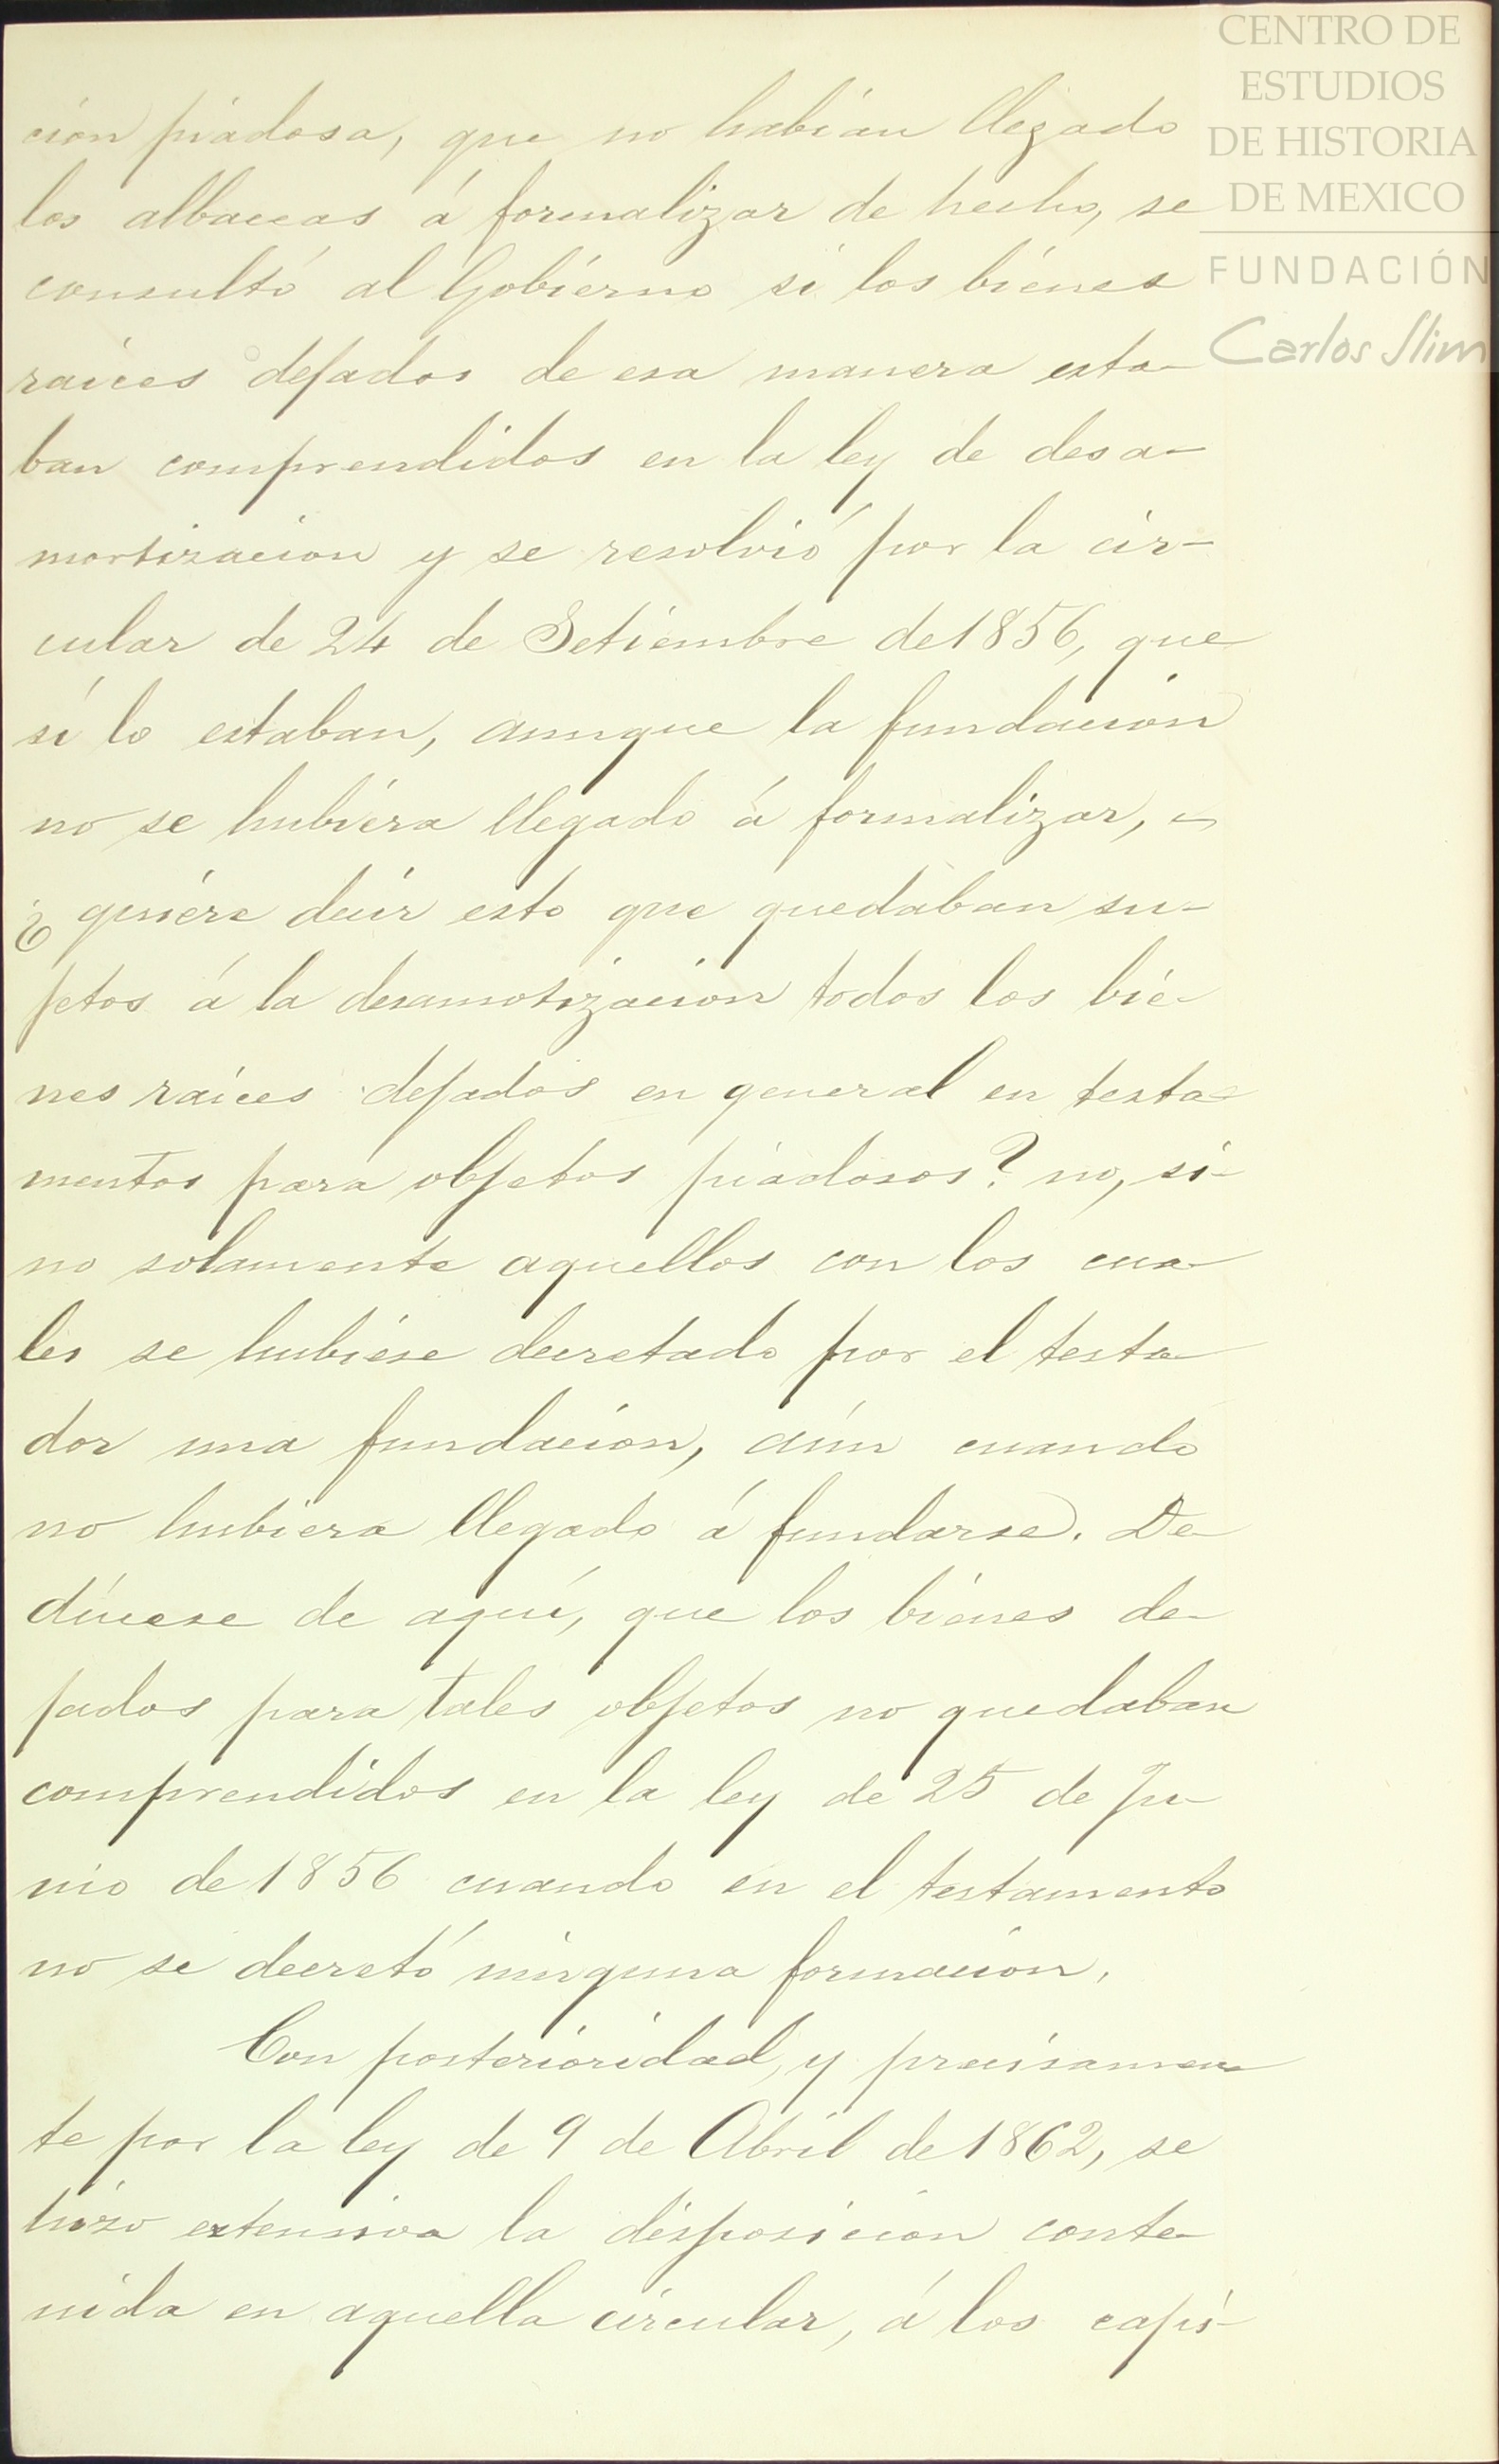 CENTRO DE
ESTUDIOS
DE HISTORIA
DE MEXICO
FUNDACIÓN
Carlos Slim
cion piadosa, que no habian llegado
los albaceas á formalizar de hecho, se
consultó al Gobierno si los bienes
raices dejados de esa manera esta-
ban comprendidos en la ley de desa-
mortizacion y se resolvió por la cir-
cular de 24 de Setiembre de 1856, que
si lo estaban, aunque la fundacion
no se hubiera llegado á formalizar,
¿quiere decir esto que quedaban su-
jetos á la desamotizacion todos los bie-
nes raices dejados en general en testa-
mentos para objetos piadosos? no, si-
no solamente aquellos con los cua-
les se hubiese decretado por el testa-
dor una fundacion, aún cuando
no hubiera llegado á fundarse. De-
dúcese de aquí, que los bienes de-
jados para tales objetos no quedaban
comprendidos en la ley de 25 de Ju-
nio de 1856 cuando en el testamento
no se decretó ninguna formacion.
Con posterioridad, y precisamen-
te por la ley de 9 de Abril de 1862, se
hizo extensiva la disposicion conte-
nida en aquella circular, á los capi-